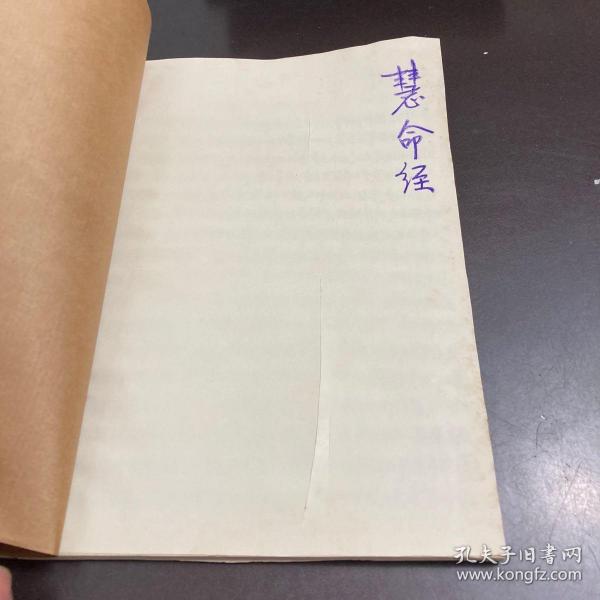 慧命经
孔夫子旧書网
www.kongfz.com